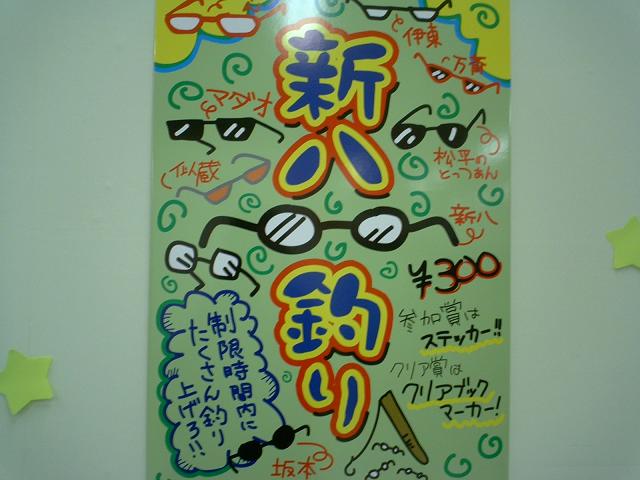 伊東
万斉
マダオ
新八
松平の
とっつぁん
似蔵
新八
釣り
¥300
参加賞は
ステッカー!!
クリア賞は
クリアブック
マーカー!
制限時間内に
たくさん釣り
上げろ!!
坂本